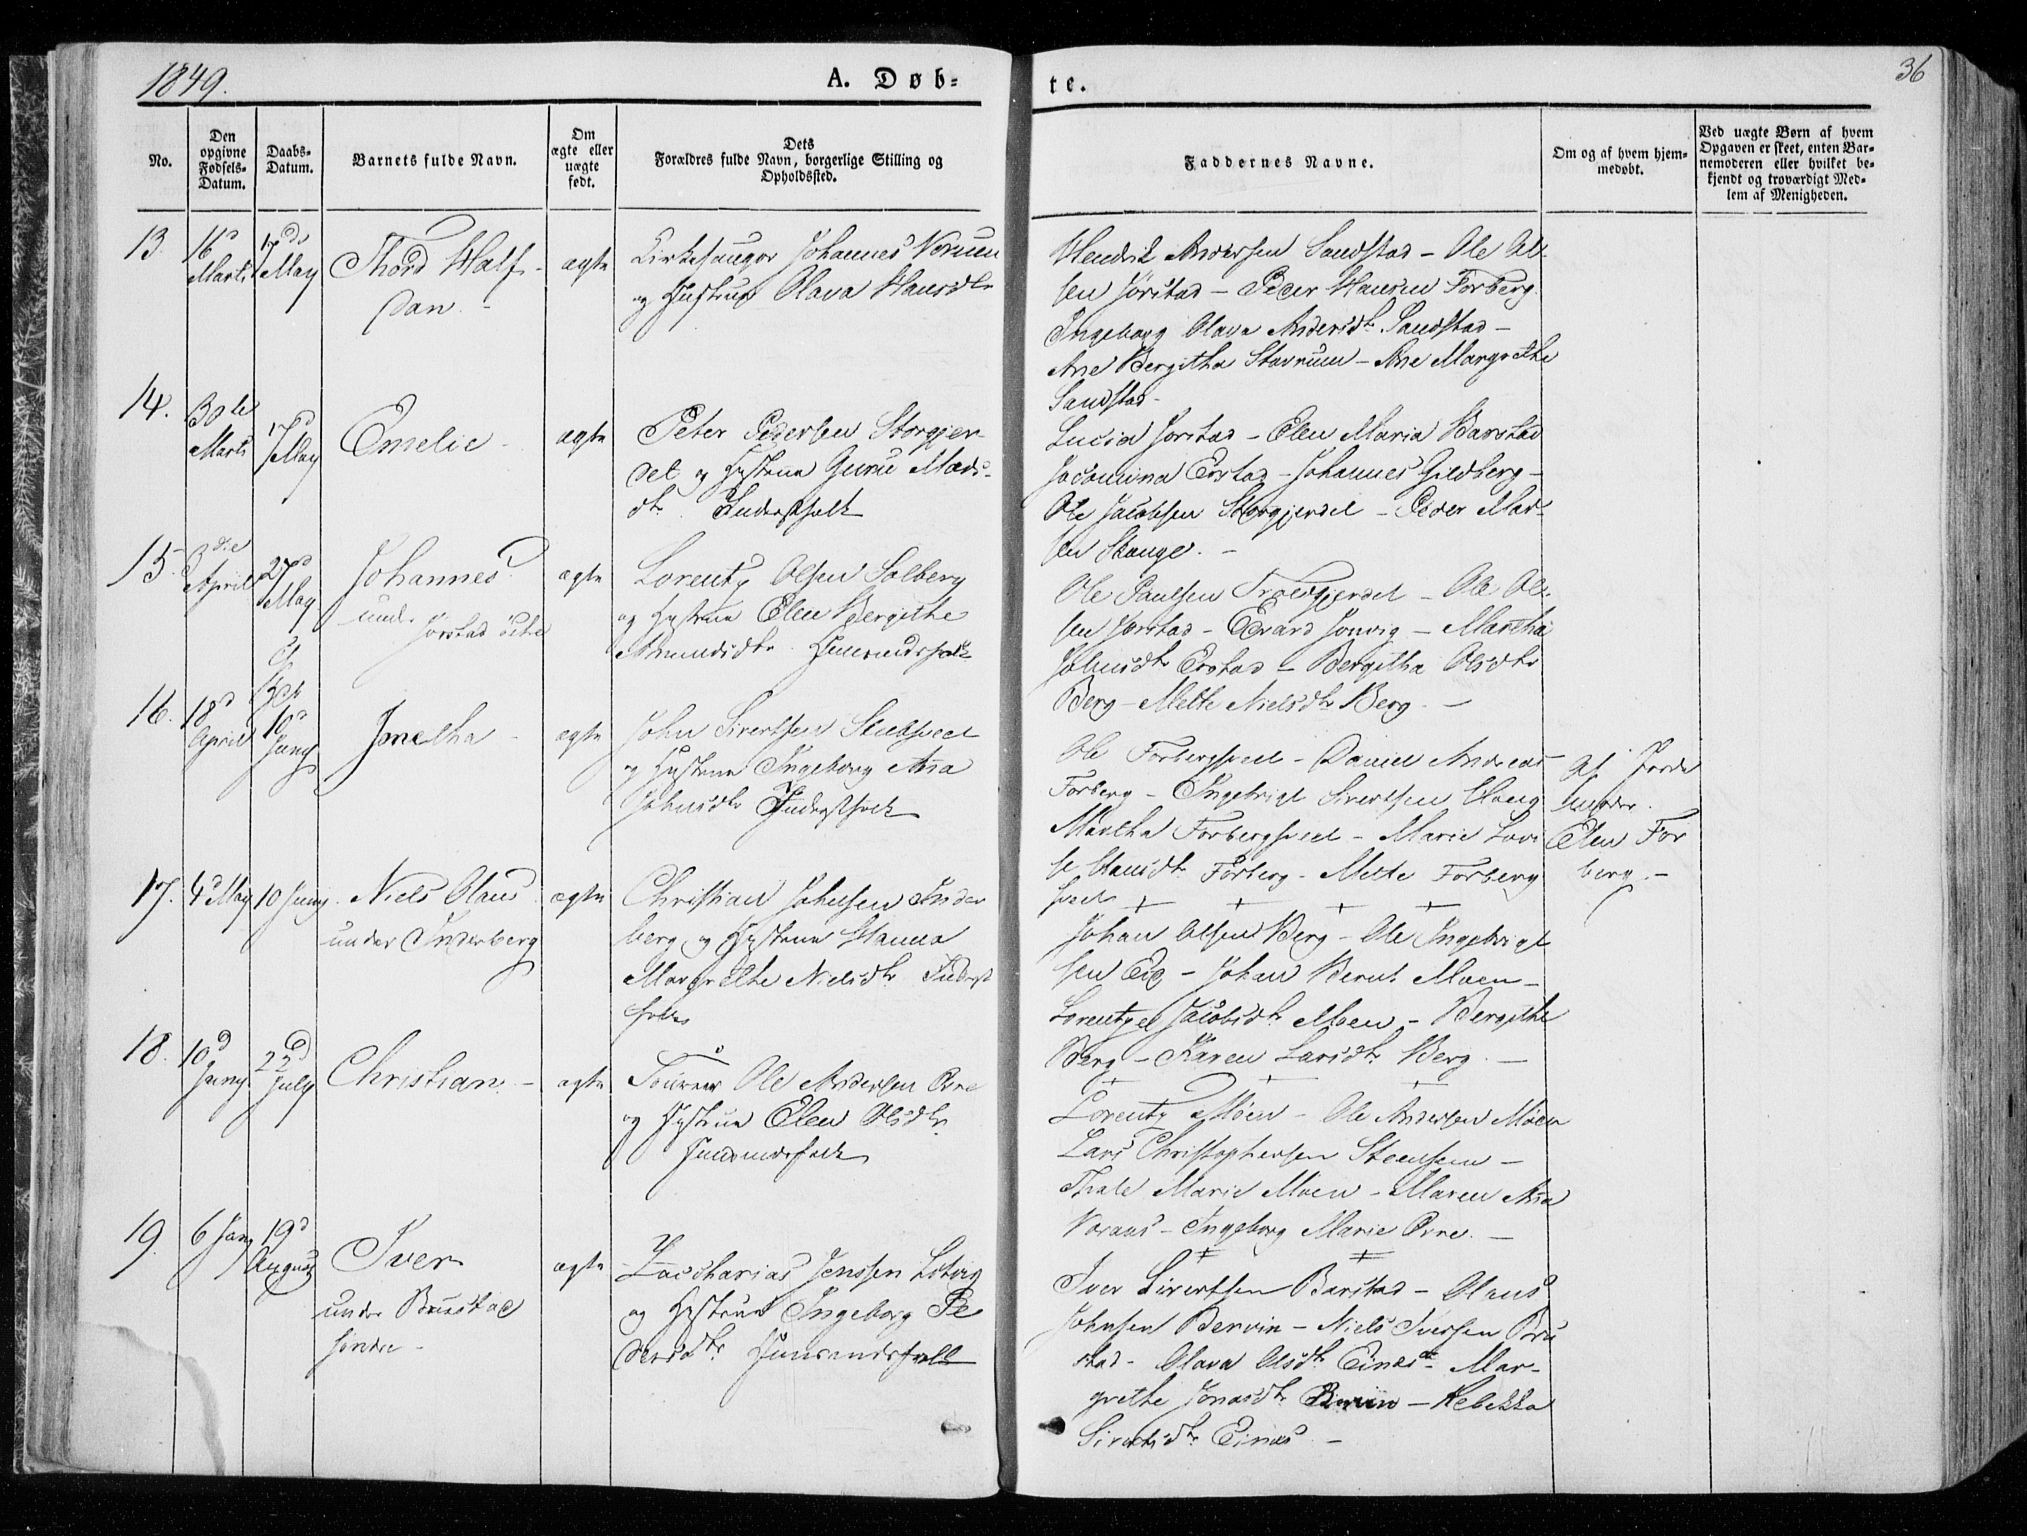 1849.
A. Døb-
te.
36
No.
Den opgivne Fødsels-Datum.
Daabs-Datum.
Barnets fulde Navn.
Om ægte eller uægte født.
Dets Forældres fulde Navn, borgerlige Stilling og Opholdssted.
Faddernes Navne.
Om og af hvem hjem-medøbt.
Ved uægte Børn af hvem Opgaven er skeet, enten Bar-nemoderen eller hvilket be-kjendt og troværdigt Med-lem af Menigheden.
13.
16d Marts
17d May
Thord Half-
dan. -
ægte
Kirkesanger Johannes
og Hustrue Olava Hansdtr
Hendrik Andersen Sandstad - Ole Ol-
sen Jørstad - Peder Hansen Forberg.
Ingeborg Olava Andersdtr Sandstad -
Ane Bergitha Stavrum - Ane Margrethe
Sandstad -
14.
30te Marts
17d May
Emelie -
ægte
Peter Pedersen Storgjer-
det og Hustrue Guru Mads-
dtr. Inderstfolk
Lucia Jørstad - Elen Maria Barstad
Jacomina Erstad - Johannes Gildberg -
Ole Jacobsen Storgjerdet - Peder Mad-
sen Stange. -
15.
3die April
27d May
Johannes
und. Jørstad østre
ægte
Lorentz Olsen Solberg
og Hustrue Elen Bergithe
Amundsdtr. Huusmandsfolk
Ole Paulsen - Ole Ol-
sen Jørstad - Edvard Jonvig - Martha
Johnsdtr Erstad - Bergitha Olsdtr
Berg - Mette Nielsdtr Berg. -
16.
18d April
10d Juny
Jmelha -
ægte
John Sivertsen
og Hustrue Ingeborg Ana
Johnsdtr Inderstfolk
Ole Forbergsveet - Daniel Andreas
Forberg - Ingebrigt Sivertsen
Martha Forbergsveet - Marie Lovi
se Hansdtr Forberg - Mette Forberg
sveet
Af Jorde
moder
Elen For
berg. -
17.
4d May
10 Juny.
Niels Olaus
under Inderberg
ægte
Christian Johnsen Inder
berg og Hustrue Hanna
Margrethe Nielsdtr Inderst
folk
Johan Olsen Berg - Ole Ingebrigt
sen Eid - Johan Bernt Moen -
Jacobsdtr Moen - Bergithe
Berg - Karen Larsdtr Berg. -
18.
10d Juny
22d July
Christian. -
ægte
Ole Andersen Øvre
og Hustrue Elen Olsdtr.
Huusmandsfolk
Lorentz Moen - Ole Andersen Moen
Lars Christophersen -
Marie Moen - Maren Ana
- Ingeborg Marie Øvre. -
19.
6 Juny
19d August
Iver
under Brustad
søndre -
ægte
Zacharias Jenssen
og Hustrue Ingeborg Pe
dersdtr. Huusmandsfolk
Iver Sivertsen Barstad - Olaus
Johnsen Bervin - Niels Iversen Bru
stad - Olava Olsdtr Einæs - Mar-
grethe Jonasdtr - Rebekka
Sivertsdtr Einæs. -